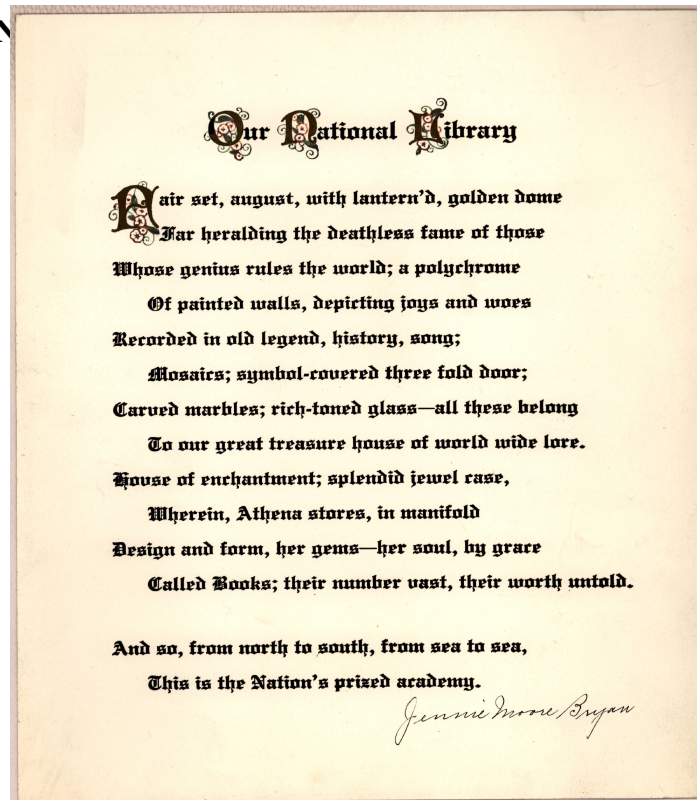 Our National Library
Fair set, august, with lantern'd, golden dome
Far heralding the deathless fame of those
Whose genius rules the world; a polychrome
Of painted walls, depicting joys and woes
Recorded in old legend, history, song;
Mosaics; symbol-covered three fold door;
Carved marbles; rich-toned glass—all these belong
To our great treasure house of world wide lore.
House of enchantment; splendid jewel case,
Wherein, Athena stores, in manifold
Design and form, her gems—her soul, by grace
Called Books; their number vast, their worth untold.
And so, from north to south, from sea to sea,
This is the Nation's prized academy.
Jennie Moore Bryan